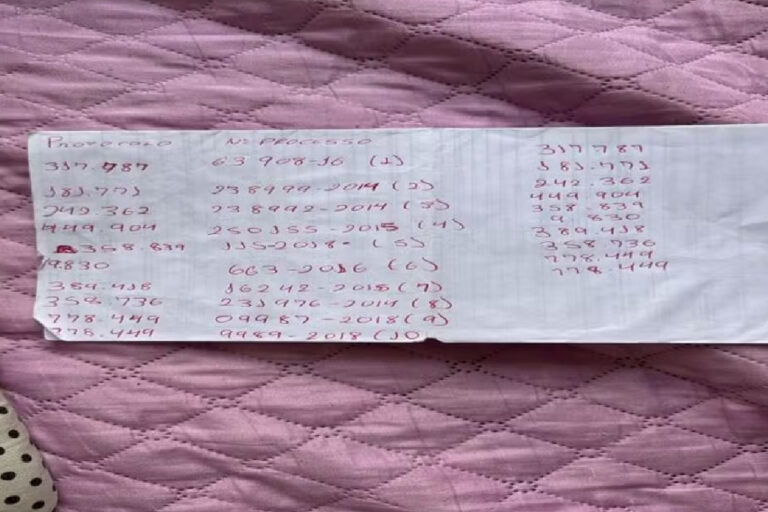 PROTOCOLO Nº PROCESSO
317.787 63 908-16 (1) 317787
181.771 238999-2014 (2) 181.771
242.362 238992-2014 (3) 242.362
449.904 250155-2015 (4) 449.904
358.839 115-2018- (5) 358-839
19.830 663-2016 (6) 9.830
389.418 16242-2018 (7) 389.418
358.736 231976-2014 (8) 358.736
778.449 09987-2018 (9) 778.449
778.449 9989-2018 (10 778.449